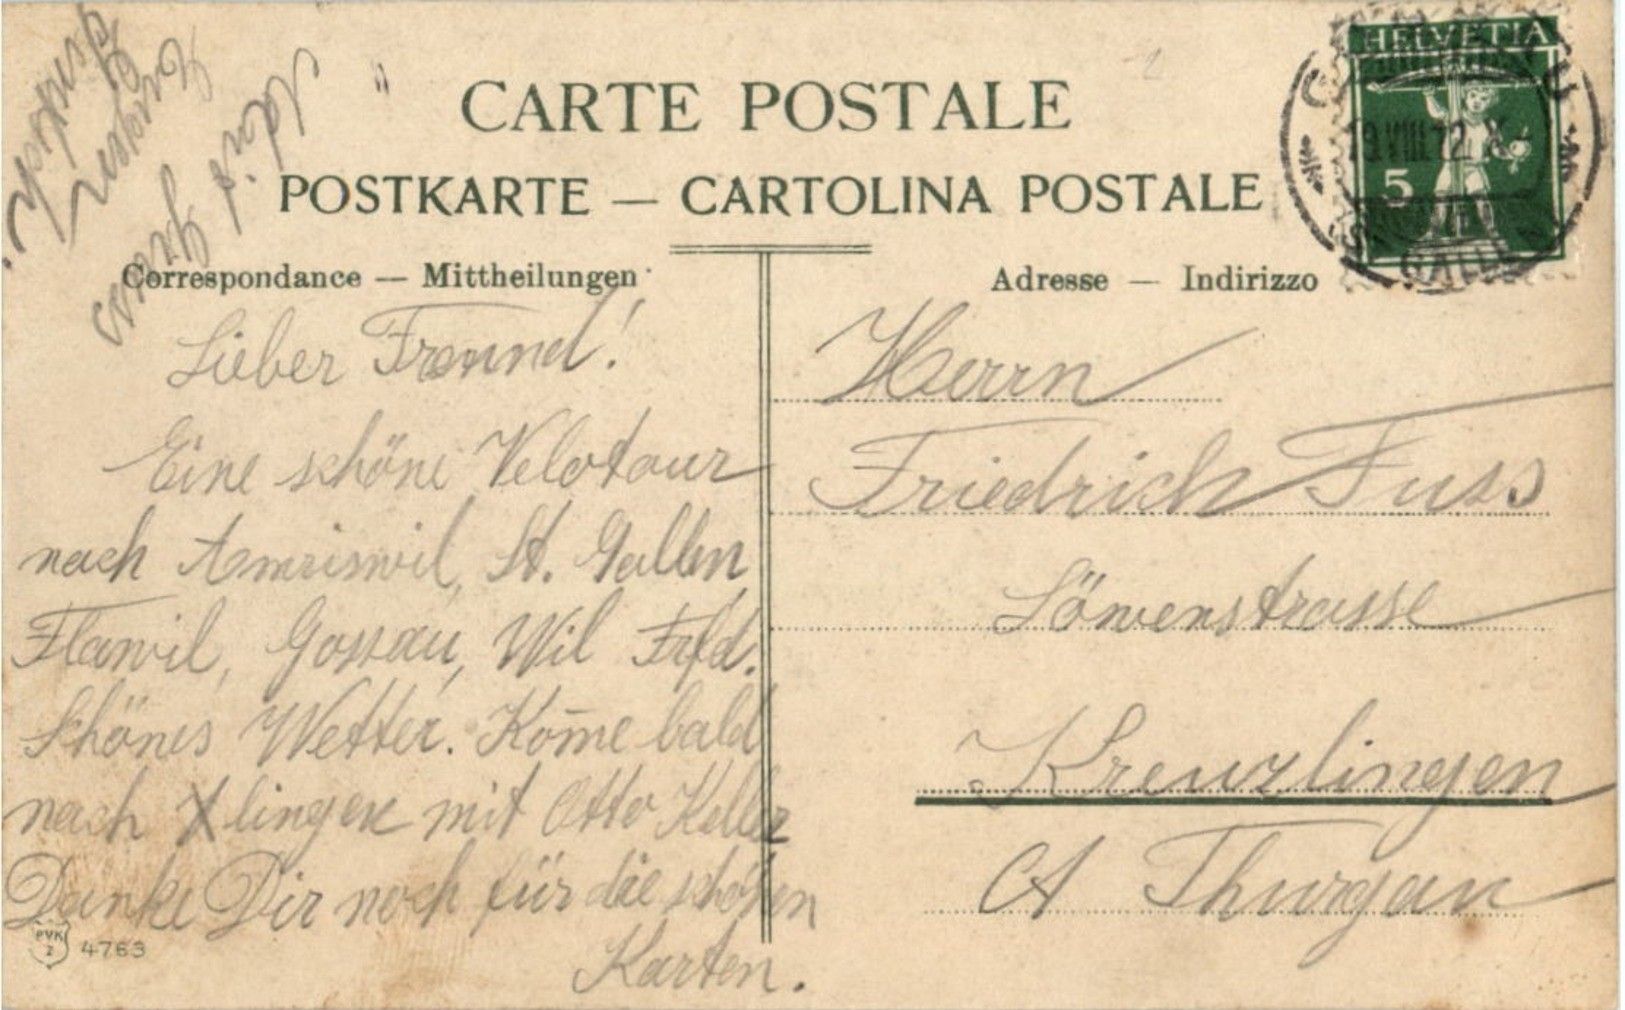 CARTE POSTALE
POSTKARTE — CARTOLINA POSTALE
Correspondance — Mittheilungen
Adresse — Indirizzo
HELVETIA
5
19.VIII.12
Lieber Freund!
Eine schöne Velotour
nach Amriswil, St. Gallen,
Flawil, Gossau, Wil Frfd.
Schönes Wetter. Kom̄e bald
nach Xlingen mit Otto Keller
Danke Dir noch für die schönen
Karten.
Herrn
Friedrich Fuss
Löwenstrasse
Kreuzlingen
Ct Thurgau
PVK
Z
4763